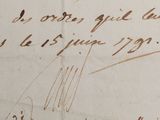 des ordres qu'il leur
le 15 juin 1791.